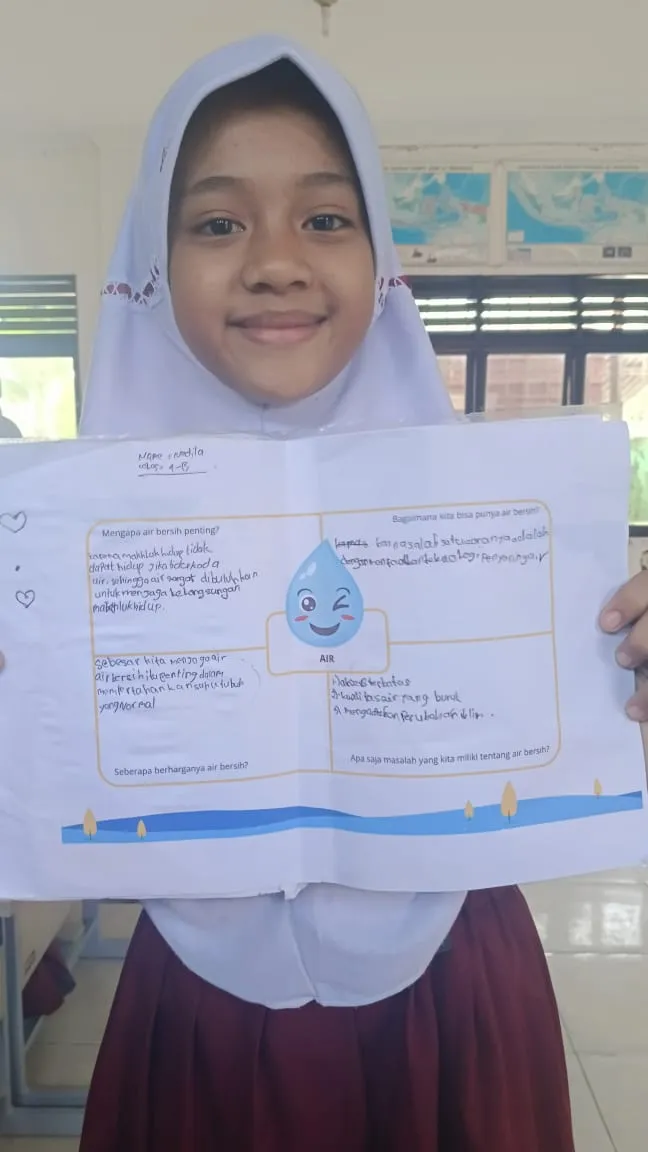 Name : Nadita
Kelas : 4-B
Mengapa air bersih penting?
karena makhluk hidup tidak
dapat hidup jika tidak ada
air, sehingga air sangat dibutuhkan
untuk menjaga kelangsungan
makhluk hidup.
Bagaimana kita bisa punya air bersih?
salah satu caranya adalah
dengan memanfaatkan teknologi penyaring air
AIR
Sebesar kita menjaga air
air bersih itu penting dalam
mempertahankan suhu tubuh
yang normal
Seberapa berharganya air bersih?
1) akses terbatas
2) kualitas air yang buruk
3) mengakibatkan perubahan iklim.
Apa saja masalah yang kita miliki tentang air bersih?